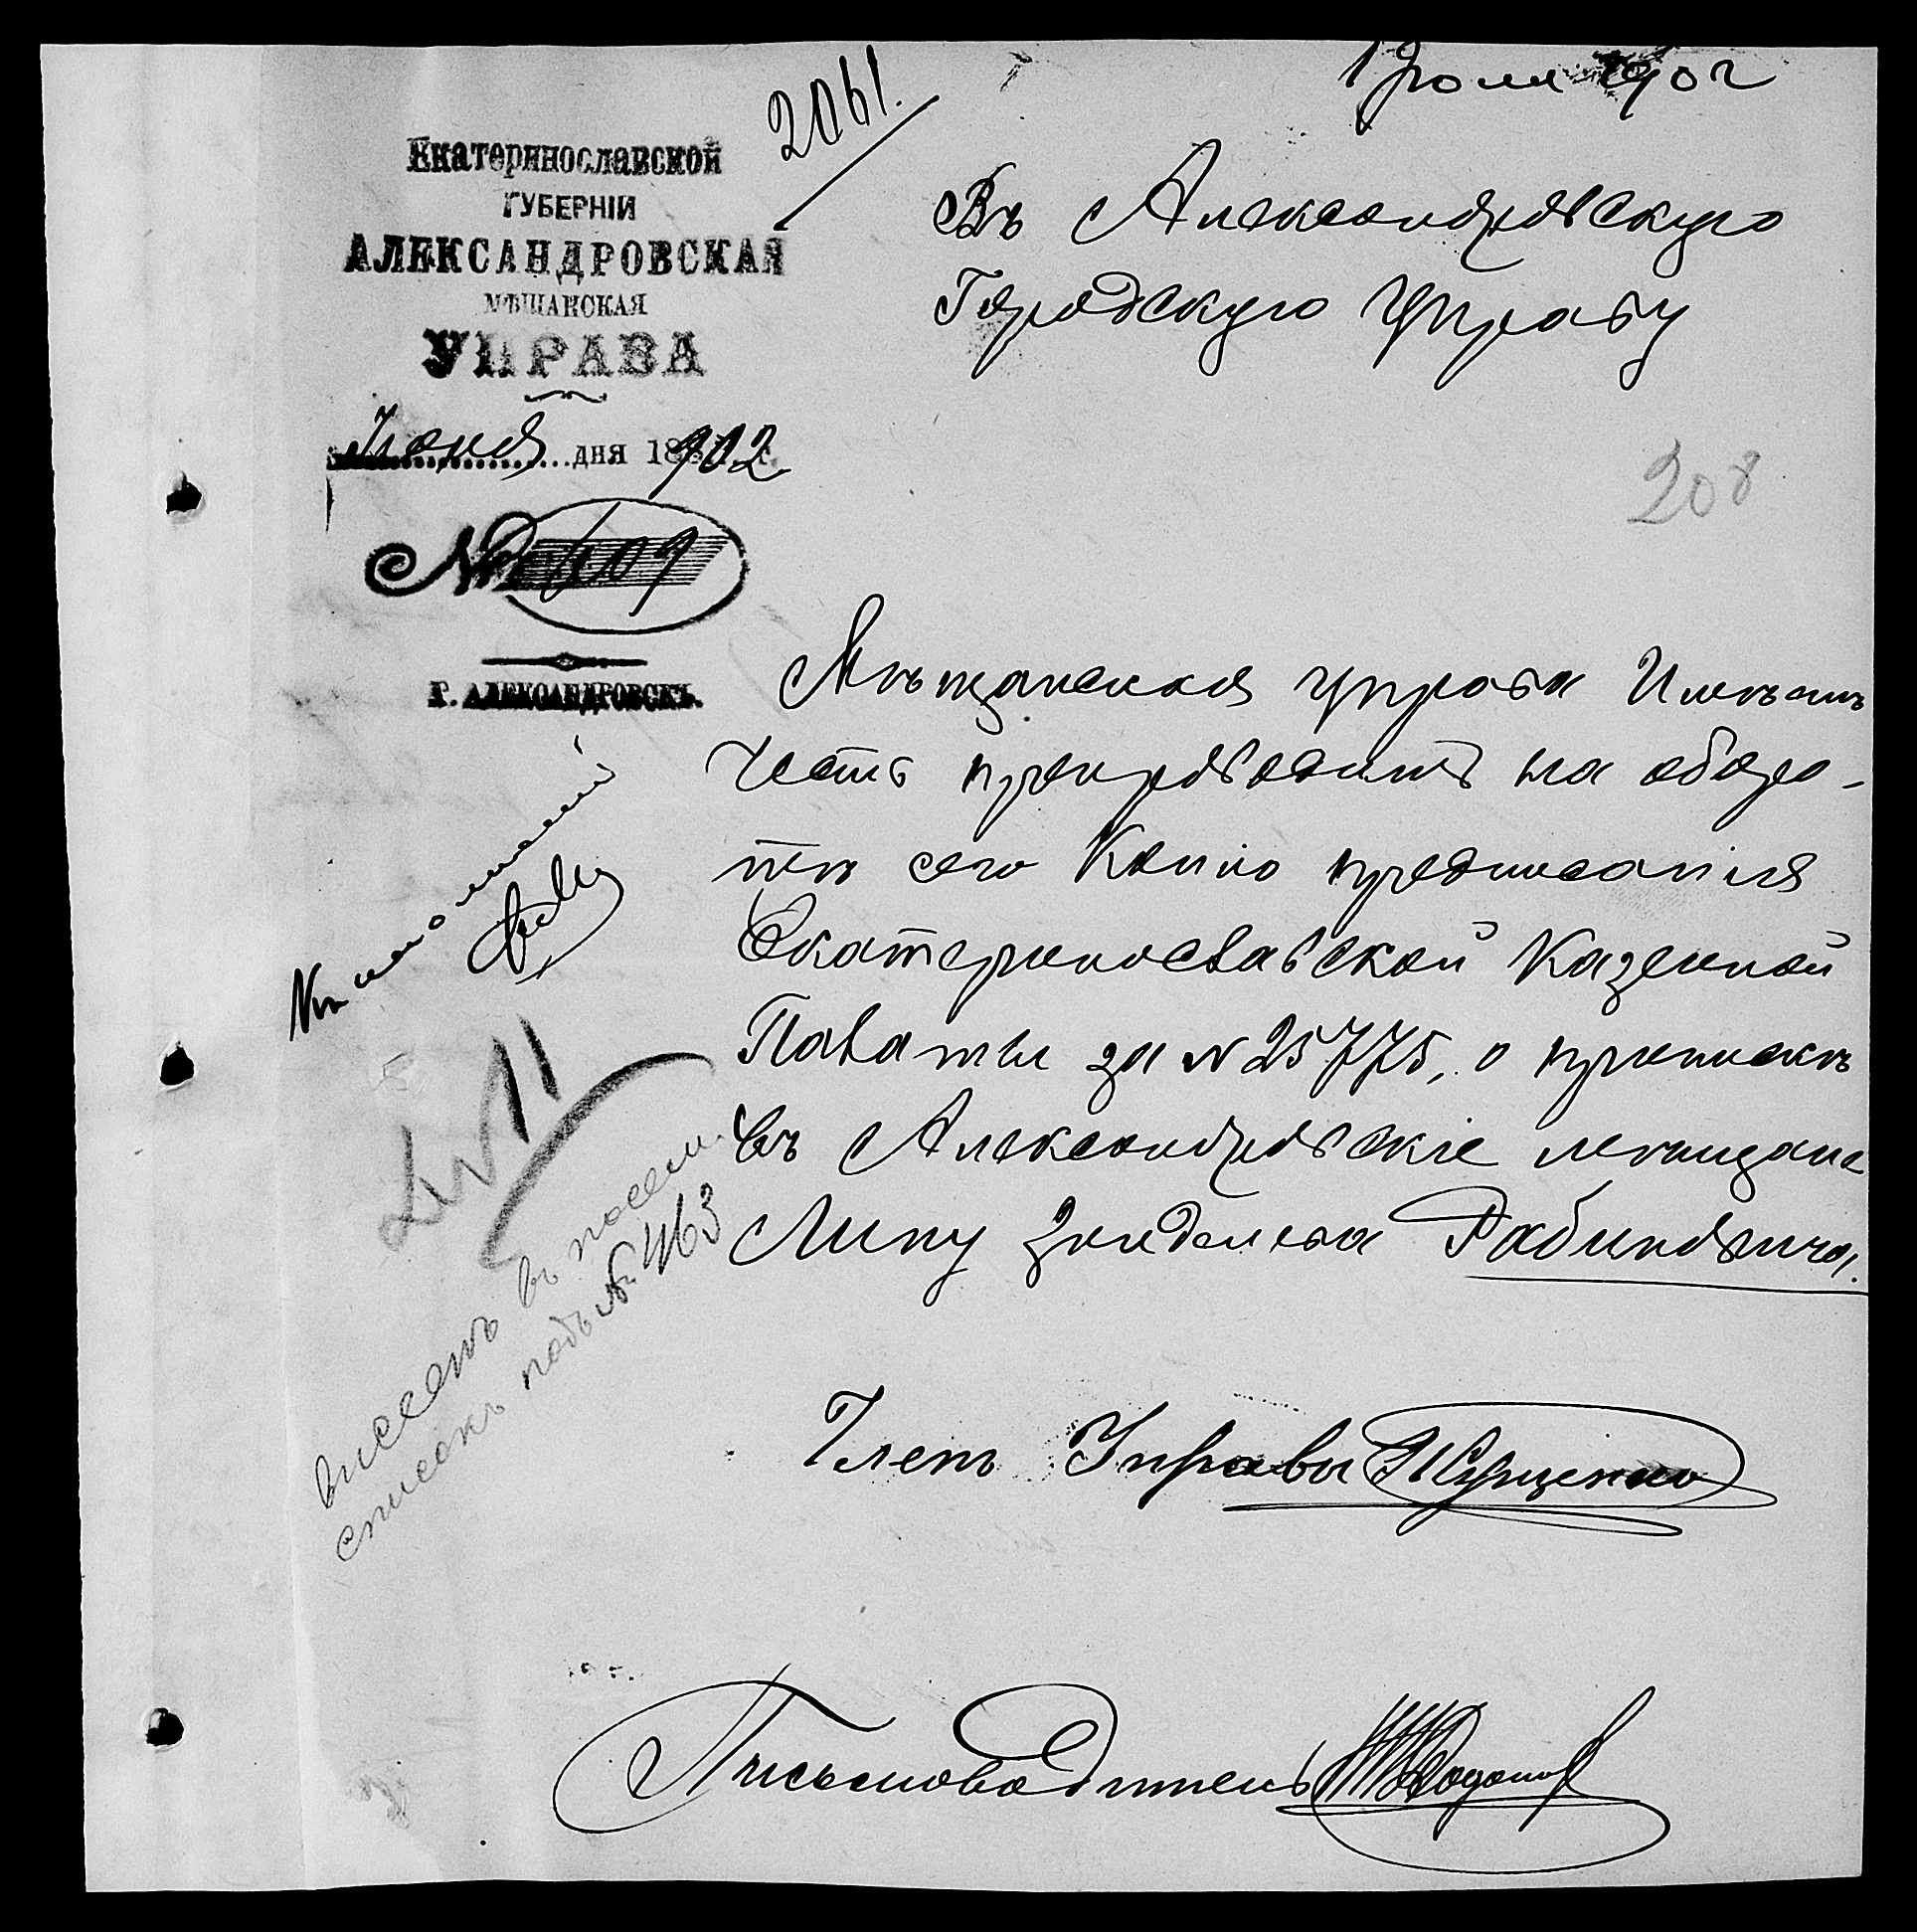 1 юля 1902
2061.
Екатеринославской
ГУБЕРНІИ
АЛЕКСАНДРОВСКАЯ
МѢЩАНСКАЯ
УПРАВА
Іюня дня 18902
№ 609
Г. АЛЕКСАНДРОВСКЪ.
Въ Александровскую
Городскую Управу
208
Мѣщанская управа Имѣетъ
честь препроводить на оборо-
тѣ сего Копію предписанія
Екатеринославской Казенной
Палаты за № 25775, о припискѣ
въ Александровскіе мѣщане
Липу Зенделева Рабиновича.
Къ исполненію
внесенъ въ посем.
списокъ подъ № 463
Членъ Управы
Письмоводитель